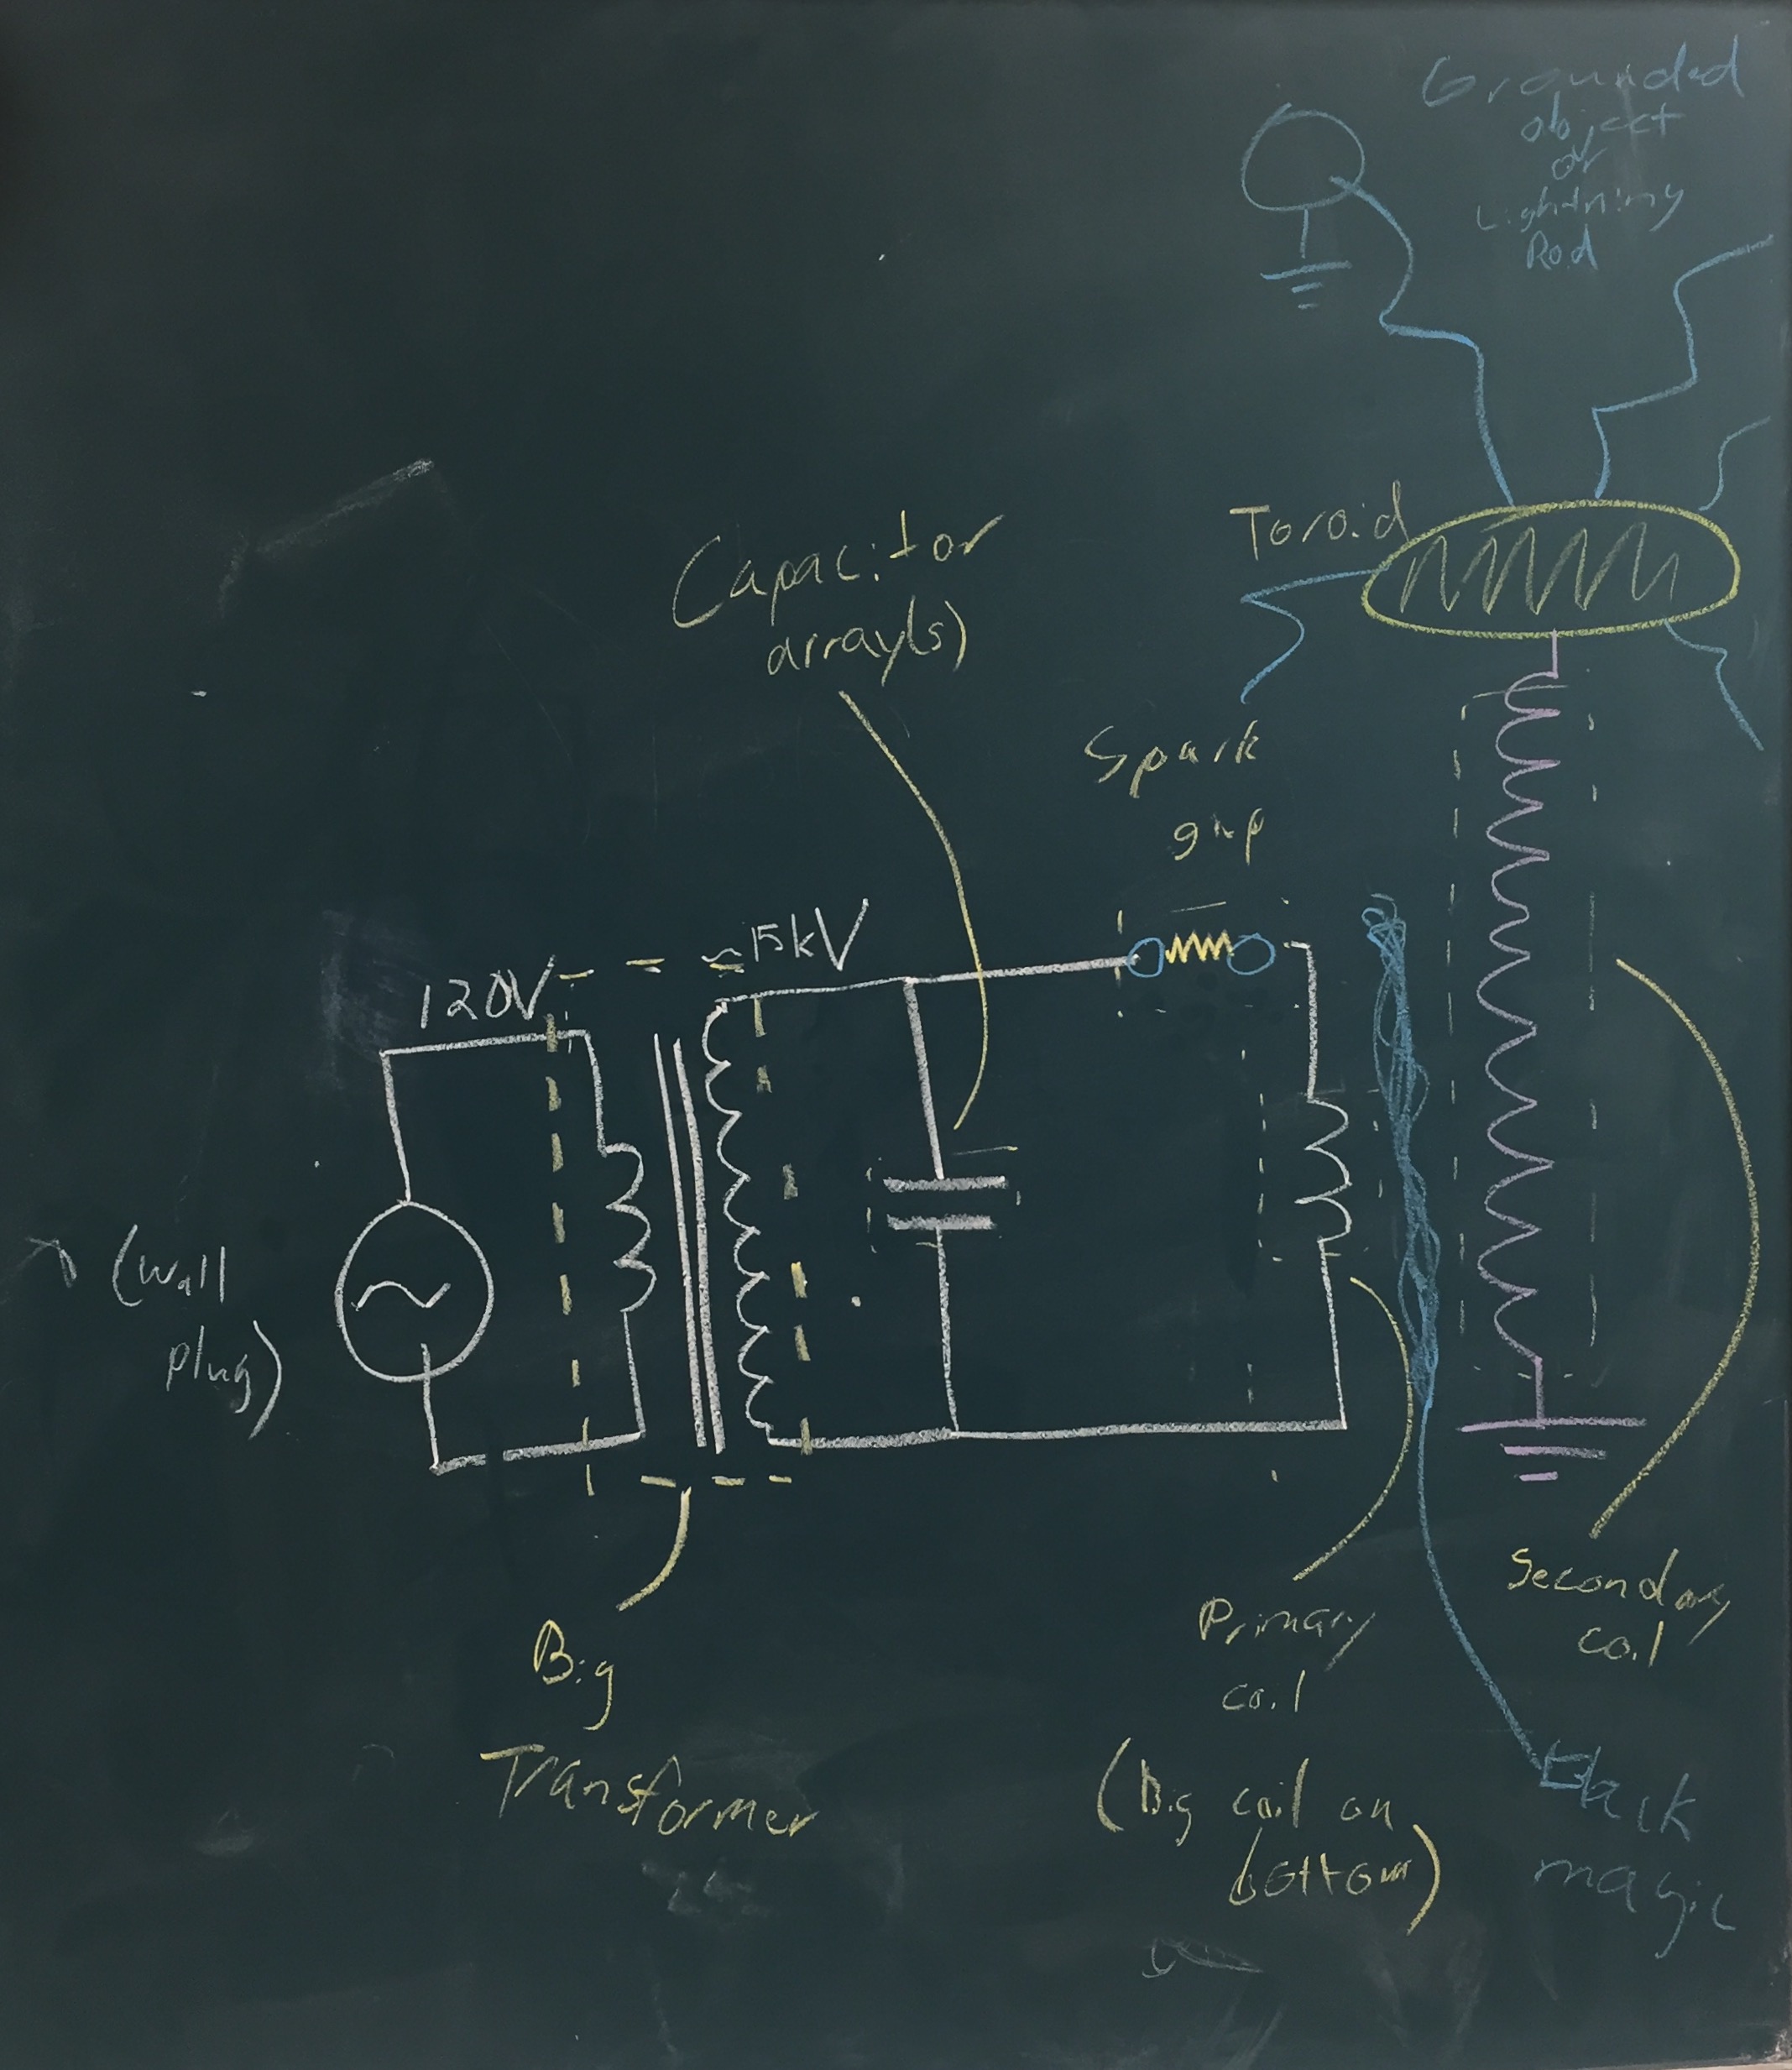 Grounded
object
or
Lightning
Rod
Toroid
Capacitor
array(s)
Spark
gap
120V
~15kV
(Wall
plug)
Big
Transformer
Primary
coil
(Big coil on
bottom)
Secondary
coil
Black
magic